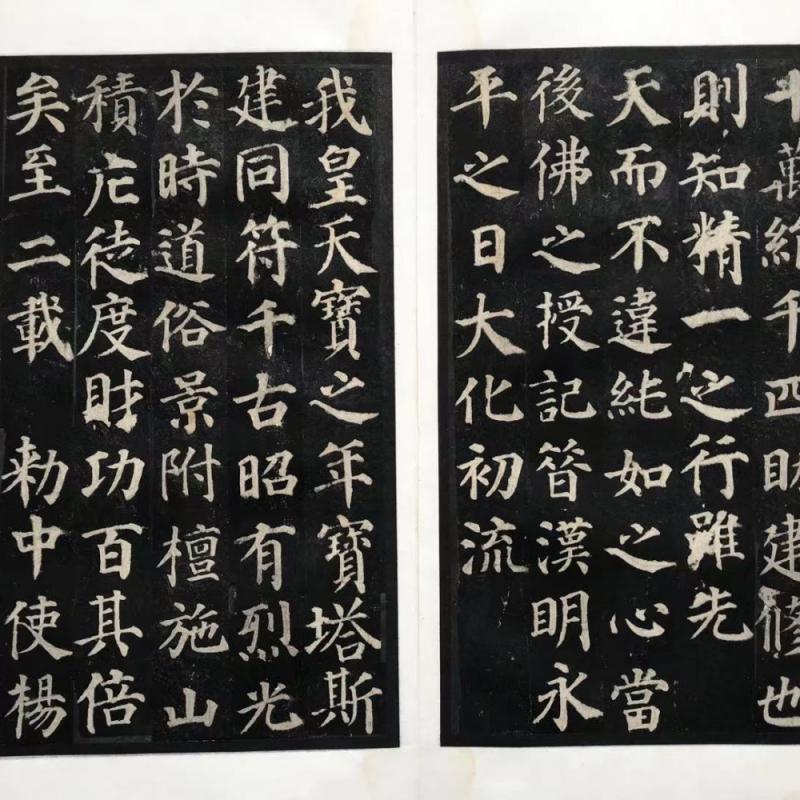 十萬絹千匹助建修也
則知精一之行雖先
天而不違純如之心當
後佛之授記昔漢明永
平之日大化初流
我皇天寶之年寶塔斯
建同符千古昭有烈光
於時道俗景附檀施山
積庀徒度財功百其倍
矣至二載 勅中使楊